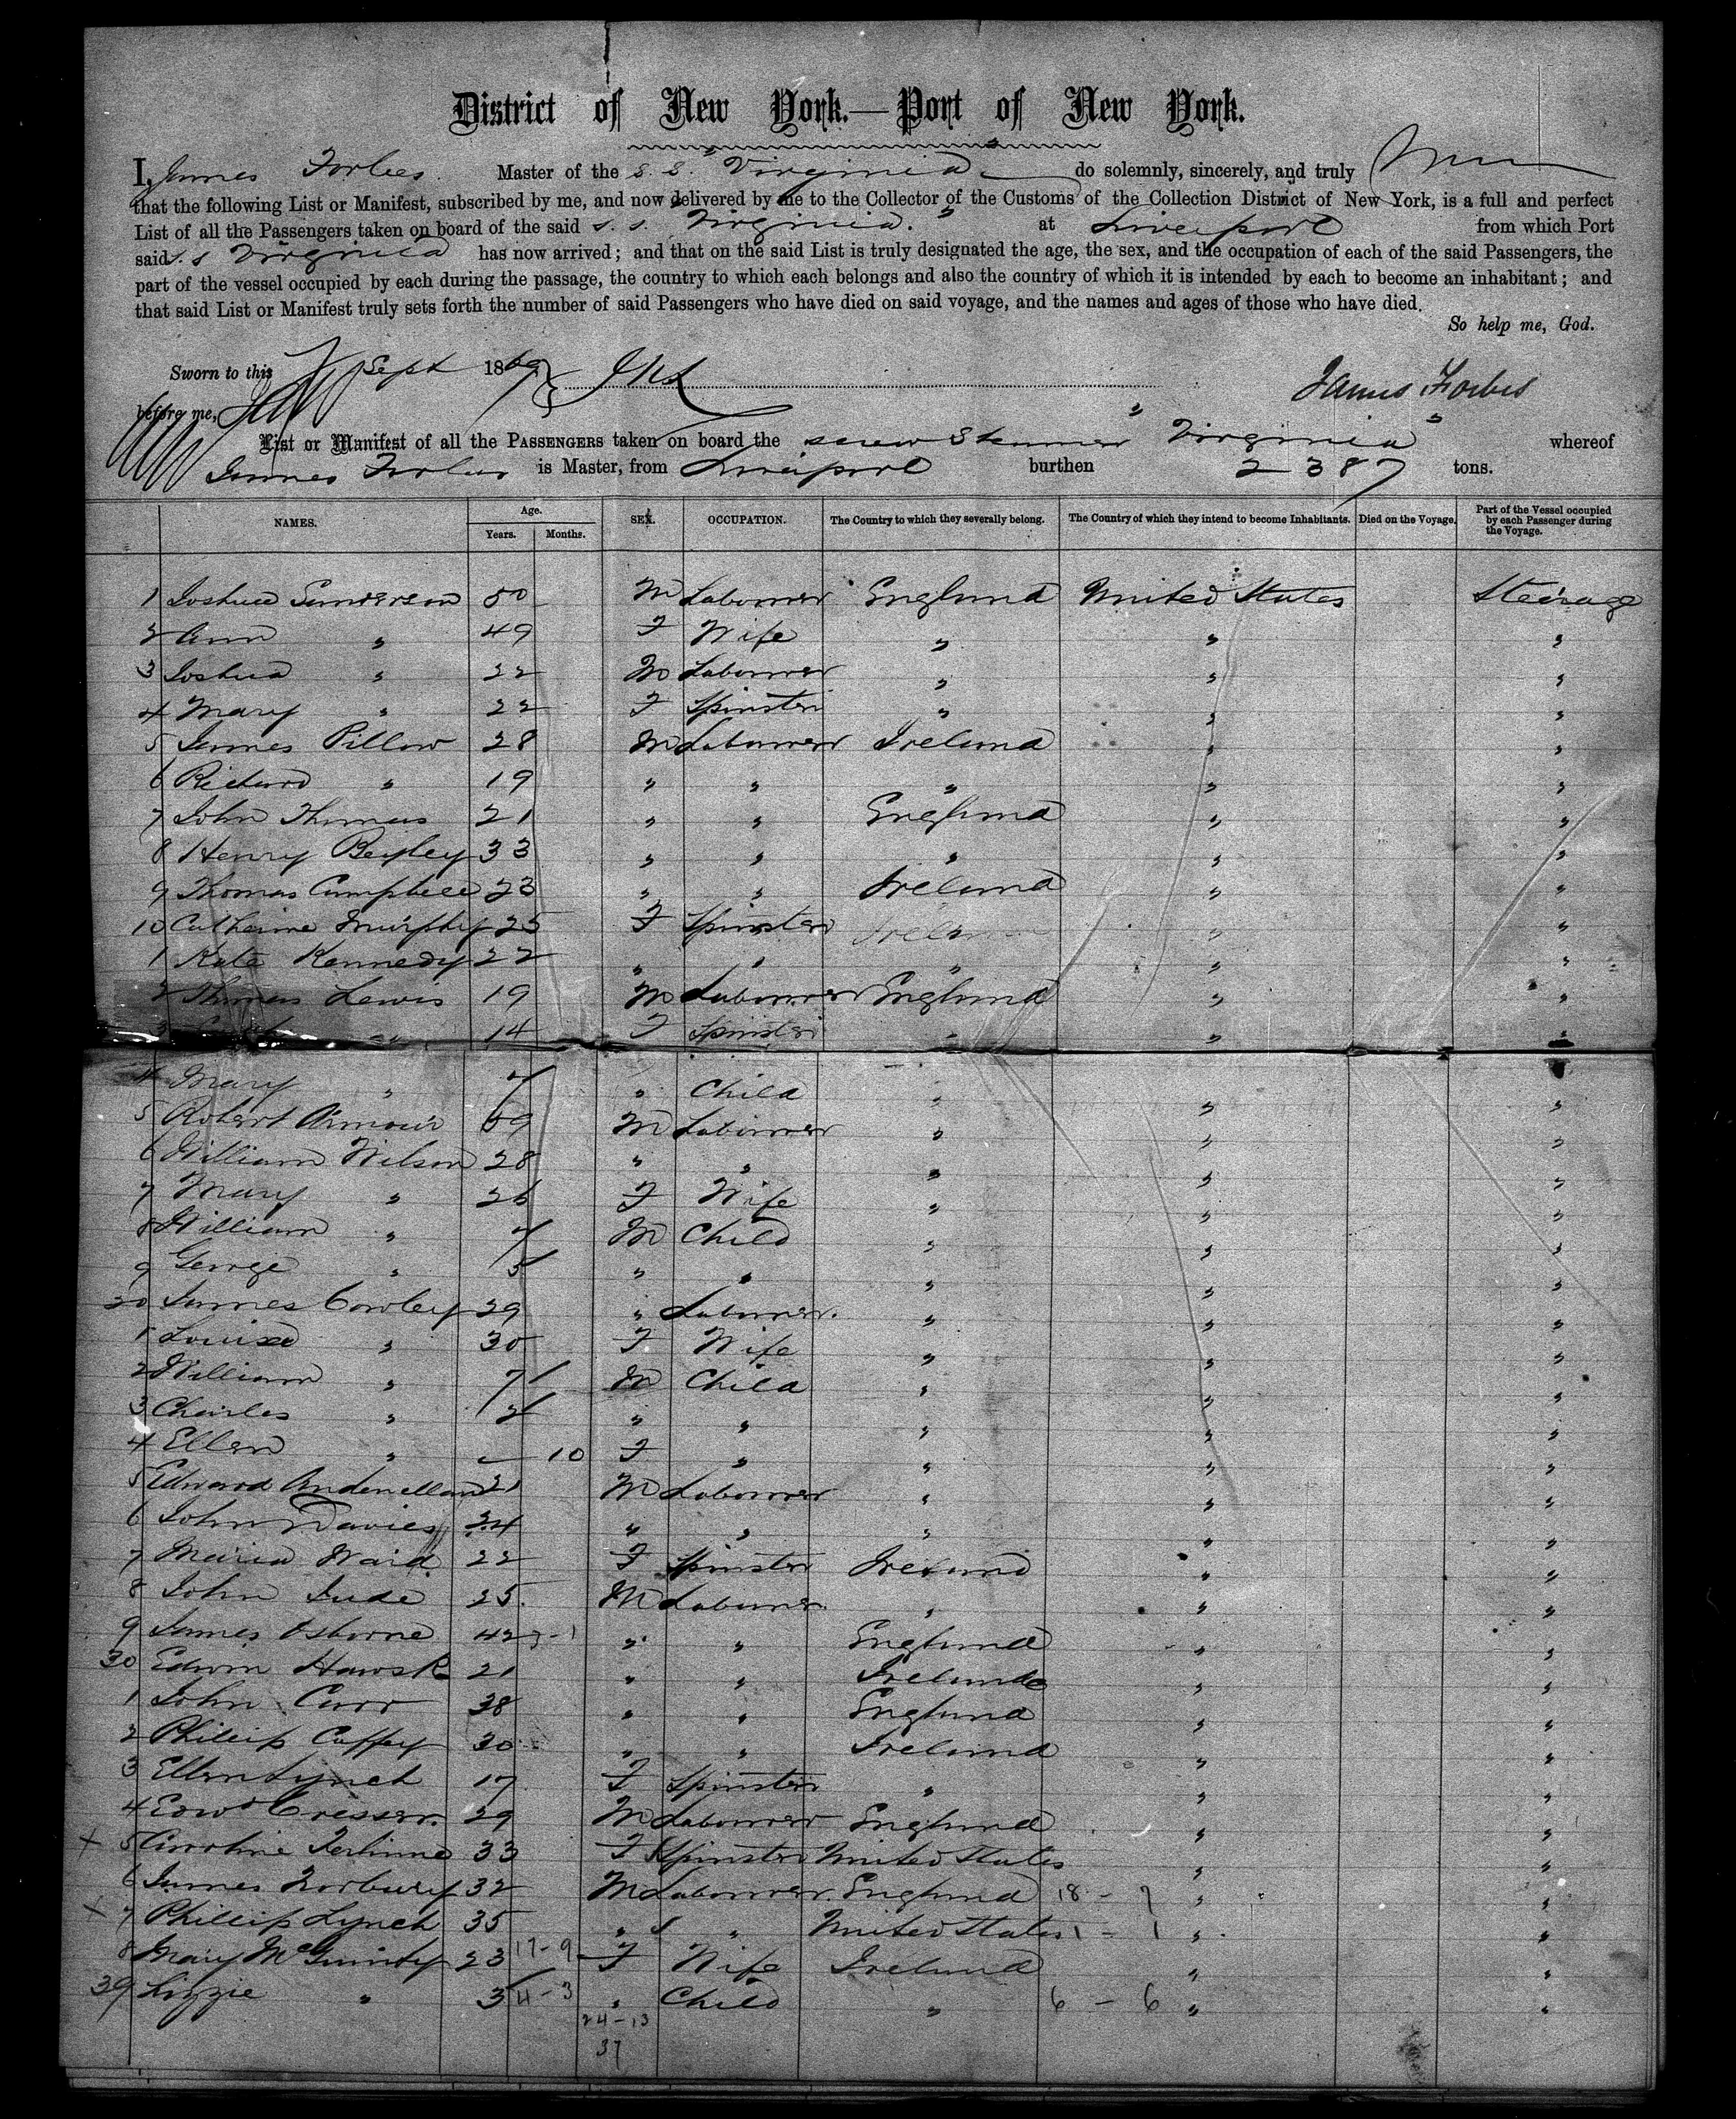 District of New York.—Port of New York.
I, James Forbes. Master of the S. S. "Virginia" do solemnly, sincerely, and truly
that the following List or Manifest, subscribed by me, and now delivered by me to the Collector of the Customs of the Collection District of New York, is a full and perfect
List of all the Passengers taken on board of the said s. s. Virginia." at Liverpool from which Port
said s. s Virginia has now arrived; and that on the said List is truly designated the age, the sex, and the occupation of each of the said Passengers, the
part of the vessel occupied by each during the passage, the country to which each belongs and also the country of which it is intended by each to become an inhabitant; and
that said List or Manifest truly sets forth the number of said Passengers who have died on said voyage, and the names and ages of those who have died.
So help me, God.
Sworn to this Sept 1869
before me, James Forbes
List or Manifest of all the PASSENGERS taken on board the screw Steamer "Virginia" whereof
James Forbes is Master, from Liverpool burthen 2387 tons.
NAMES. Age. Years. Months. SEX. OCCUPATION. The Country to which they severally belong. The Country of which they intend to become Inhabitants. Died on the Voyage. Part of the Vessel occupied by each Passenger during the Voyage.
1 Joshua Sanderson 50 M Labourer England United States Steerage
2 Ann " 49 F Wife " " "
3 Joshua " 22 M Labourer " " "
4 Mary " 22 F Spinster " " "
5 James Pillow 28 M Labourer Ireland " "
6 Richard " 19 " " " " "
7 John Thomas 21 " " England " "
8 Henry Bayley 33 " " " " "
9 Thomas Campbell 23 " " Ireland " "
10 Catherine Murphy 25 F Spinster Ireland " "
1 Kate Kennedy 22 " " " " "
2 Thomas Lewis 19 M Labourer England " "
3 " 14 F Spinster " " "
4 Mary " 7 " Child " " "
5 Robert Armour 59 M Labourer " " "
6 William Wilson 28 " " " " "
7 Mary " 26 F Wife " " "
8 William " 7 M Child " " "
9 George " 5 " " " " "
20 James Cowley 29 " Labourer. " " "
1 Louisa " 30 F Wife " " "
2 William " 7 M Child " " "
3 Charles " 2 " " " " "
4 Ellen " 10 F " " " "
5 Edward 21 M Labourer " " "
6 John Davies 24 " " " " "
7 Maria Ward 22 F Spinster Ireland " "
8 John Jude 25. M Labourer " " "
9 James Osborne 42 " " England " "
30 Edwin 21 " " Ireland " "
1 John Carr 38 " " England " "
2 Phillip Caffey 30 " " Ireland " "
3 Ellen Lynch 17 F Spinster " " "
4 Edwd Cresser. 29 M Labourer England " "
+ 5 Caroline 33 F Spinster United States " "
6 James Norbury 32 M Labourer. England 18 - 7 " "
+ 7 Phillip Lynch 35 " " United States 1 - 1 " "
8 Mary McGuinty 23 17-9 F Wife Ireland " "
39 Lizzie " 3 4-3 " Child " 6 - 6 " "
24-13
37